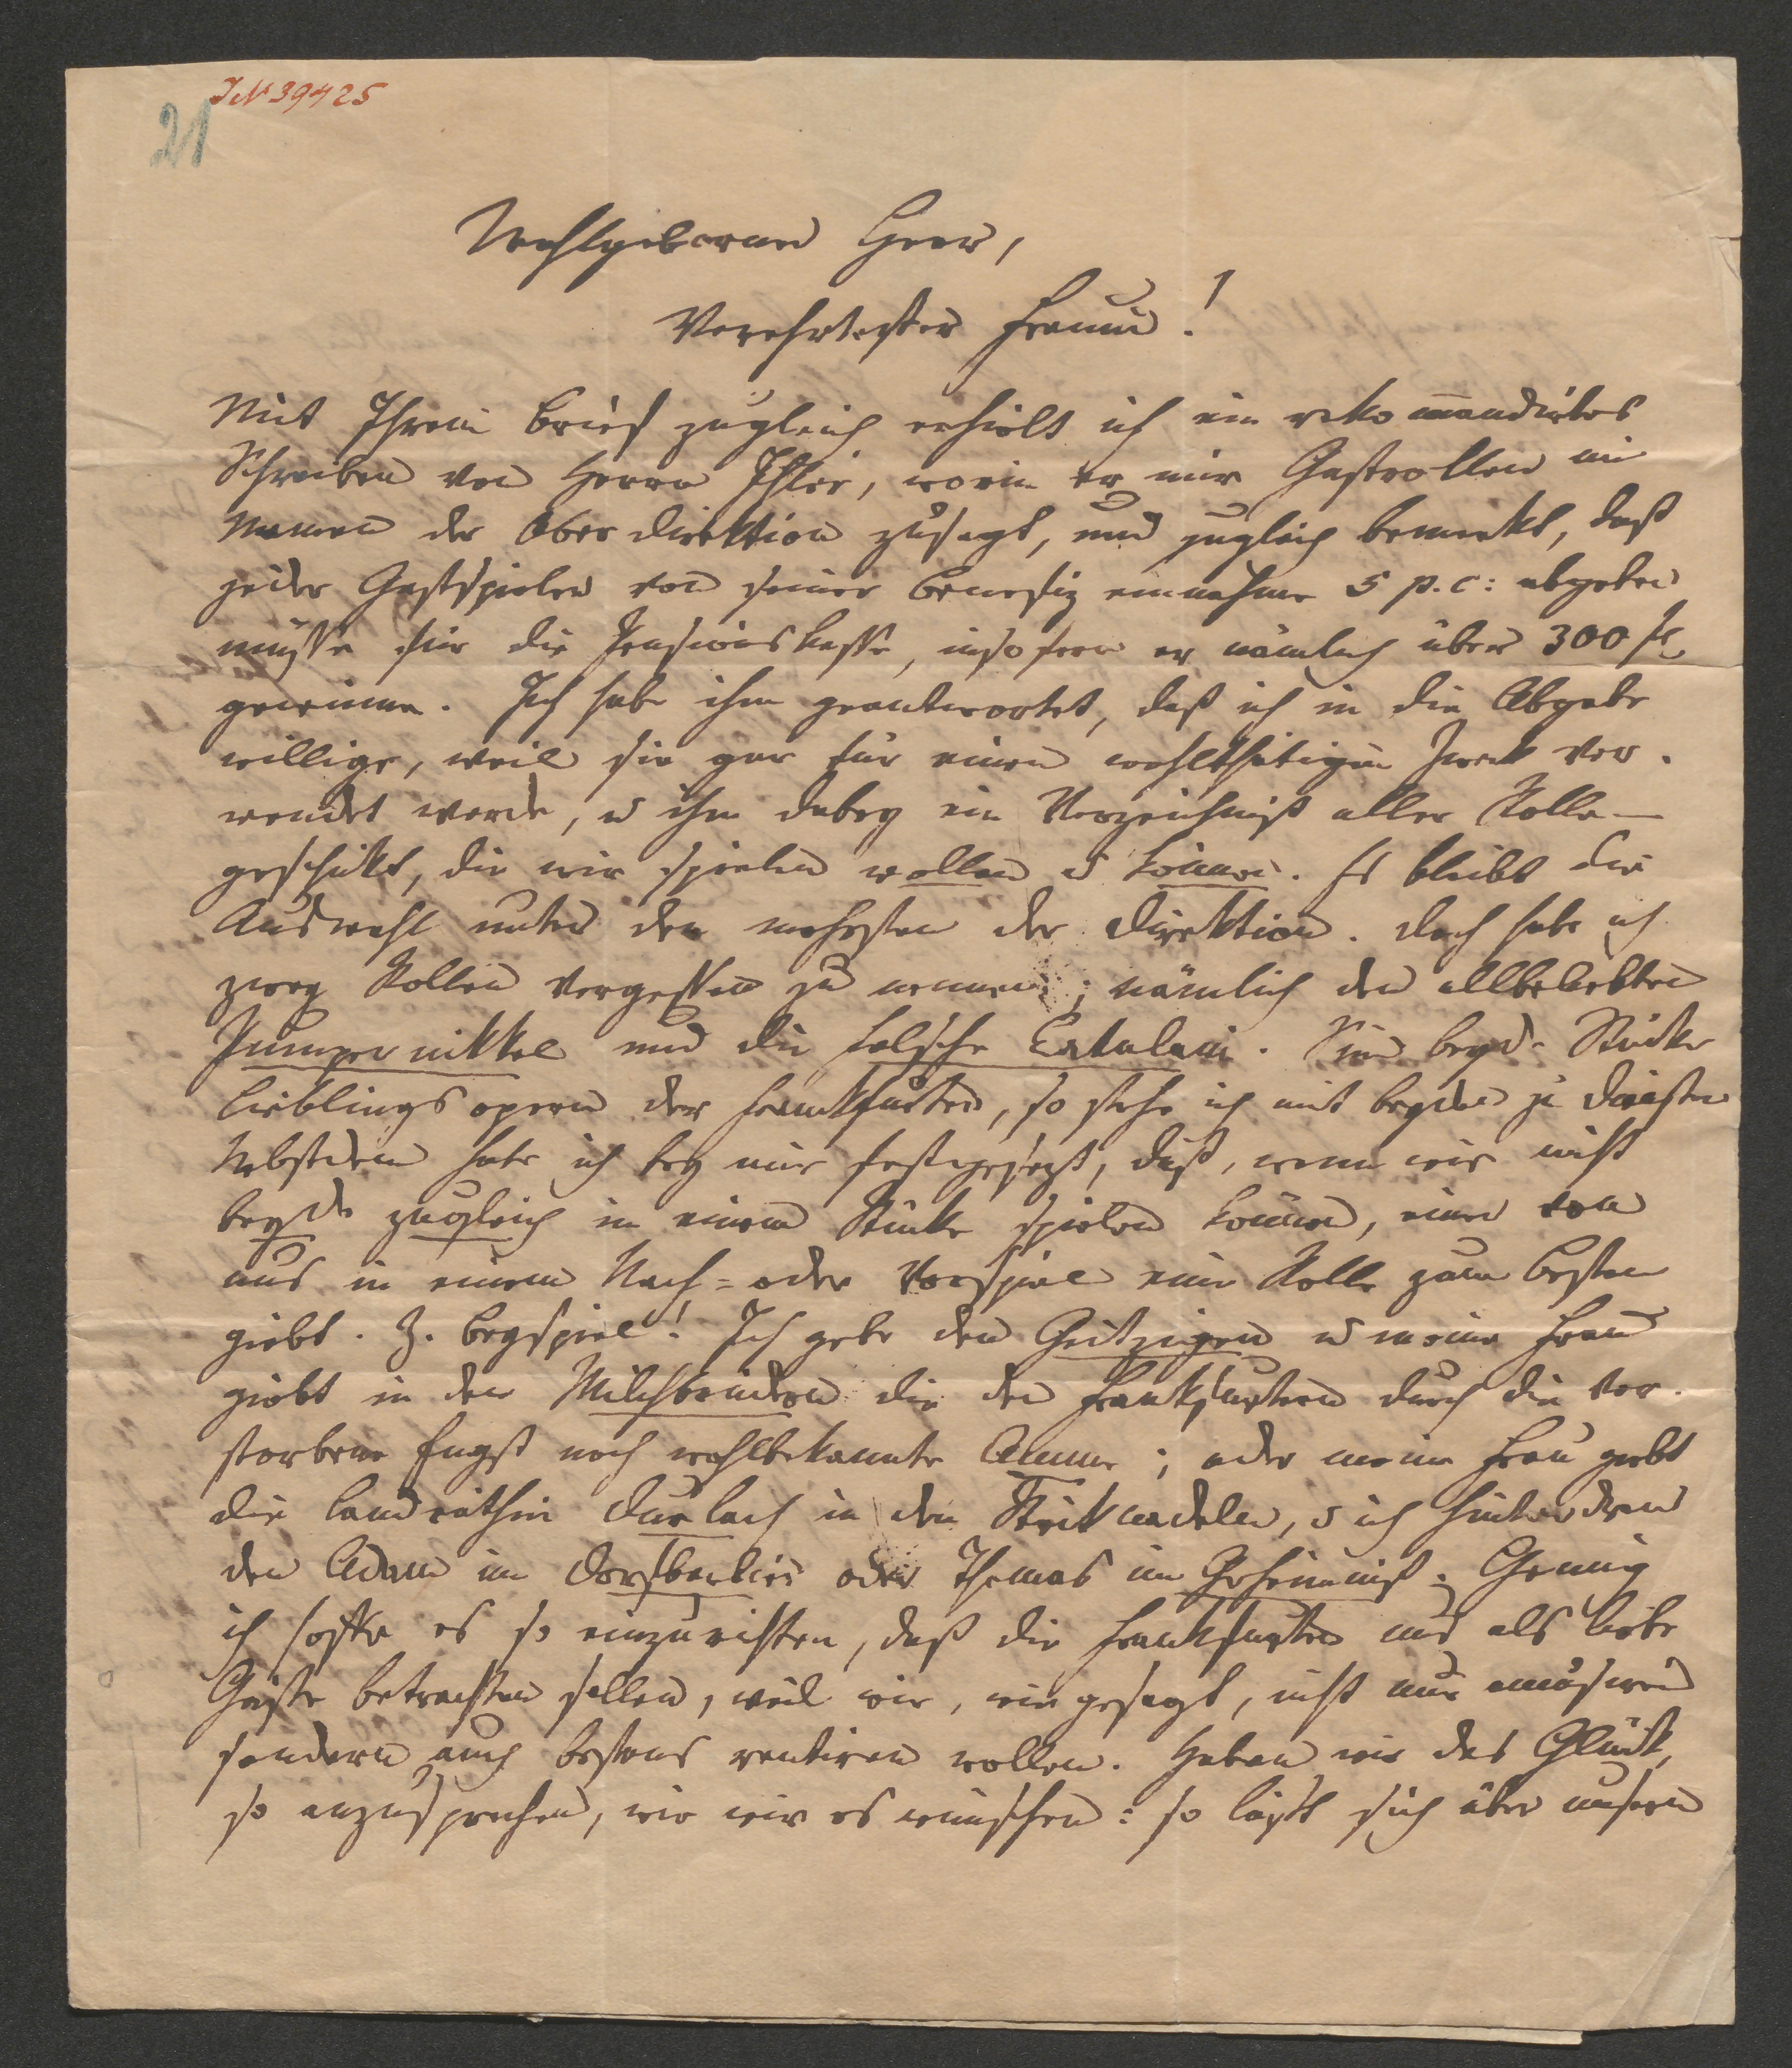 JN 39425
21
Wohlgeborner Herr,
Verehrtester Freund!
Mit Ihrem Brief zugleich erhielt ich ein rekommandirtes
Schreiben von Herrn Ihlée, worin er mir Gastrollen im
Namen der Oberdirektion zusagt, und zugleich bemerkt, daß
jeder Gastspieler von seiner Benefiz einnahme 5 p.c: abgeben
müsse für die Pensionskasse, insofern er nämlich über 300 fl
gewinne. Ich habe ihm geantwortet, daß ich in die Abgabe
willige, weil sie gar für einen wohlthätigen Zweck ver-
wendet werde, u ihm dabey ein Verzeichniß aller Rollen
geschikt, die wir spielen wollen u können. Es bleibt die
Auswahl unter den mehrsten der Direktion. Doch habe ich
zwey Rollen vergessen zu nennen; nämlich den allbeliebten
Pumpernikkel und die falsche Catalani. Sind beyde Stücke
Lieblingsopern der Frankfurter, so stehe ich mit beyden zu Diensten
Nebstdem habe ich bey mir festgesezt, daß, wenn wir nicht
beyde zugleich in einem Stücke spielen können, einer von
uns in einem Nach- oder Vorspiel eine Rolle zum Besten
giebt. Z. Beyspiel! Ich gebe den Geitzigen u meine Frau
giebt in den Milchbrüdern die den Frankfurtern durch die ver-
storbene Engst noch wohlbekannte Amme; oder meine Frau giebt
die Landräthin Durlach in den Striknadeln, u ich hinterdrein
den Adam im Dorfbarbier oder Thomas im Geheimniß. Genug
ich hoffe es so einzurichten, daß die Frankfurter uns als liebe
Gäste betrachten sollen, weil wir, wie gesagt, nicht nur amüsiren
sondern auch bestens rentiren wollen. Haben wir das Glück,
so anzusprechen, wie wir es wünschen: so läßt sich über unsern